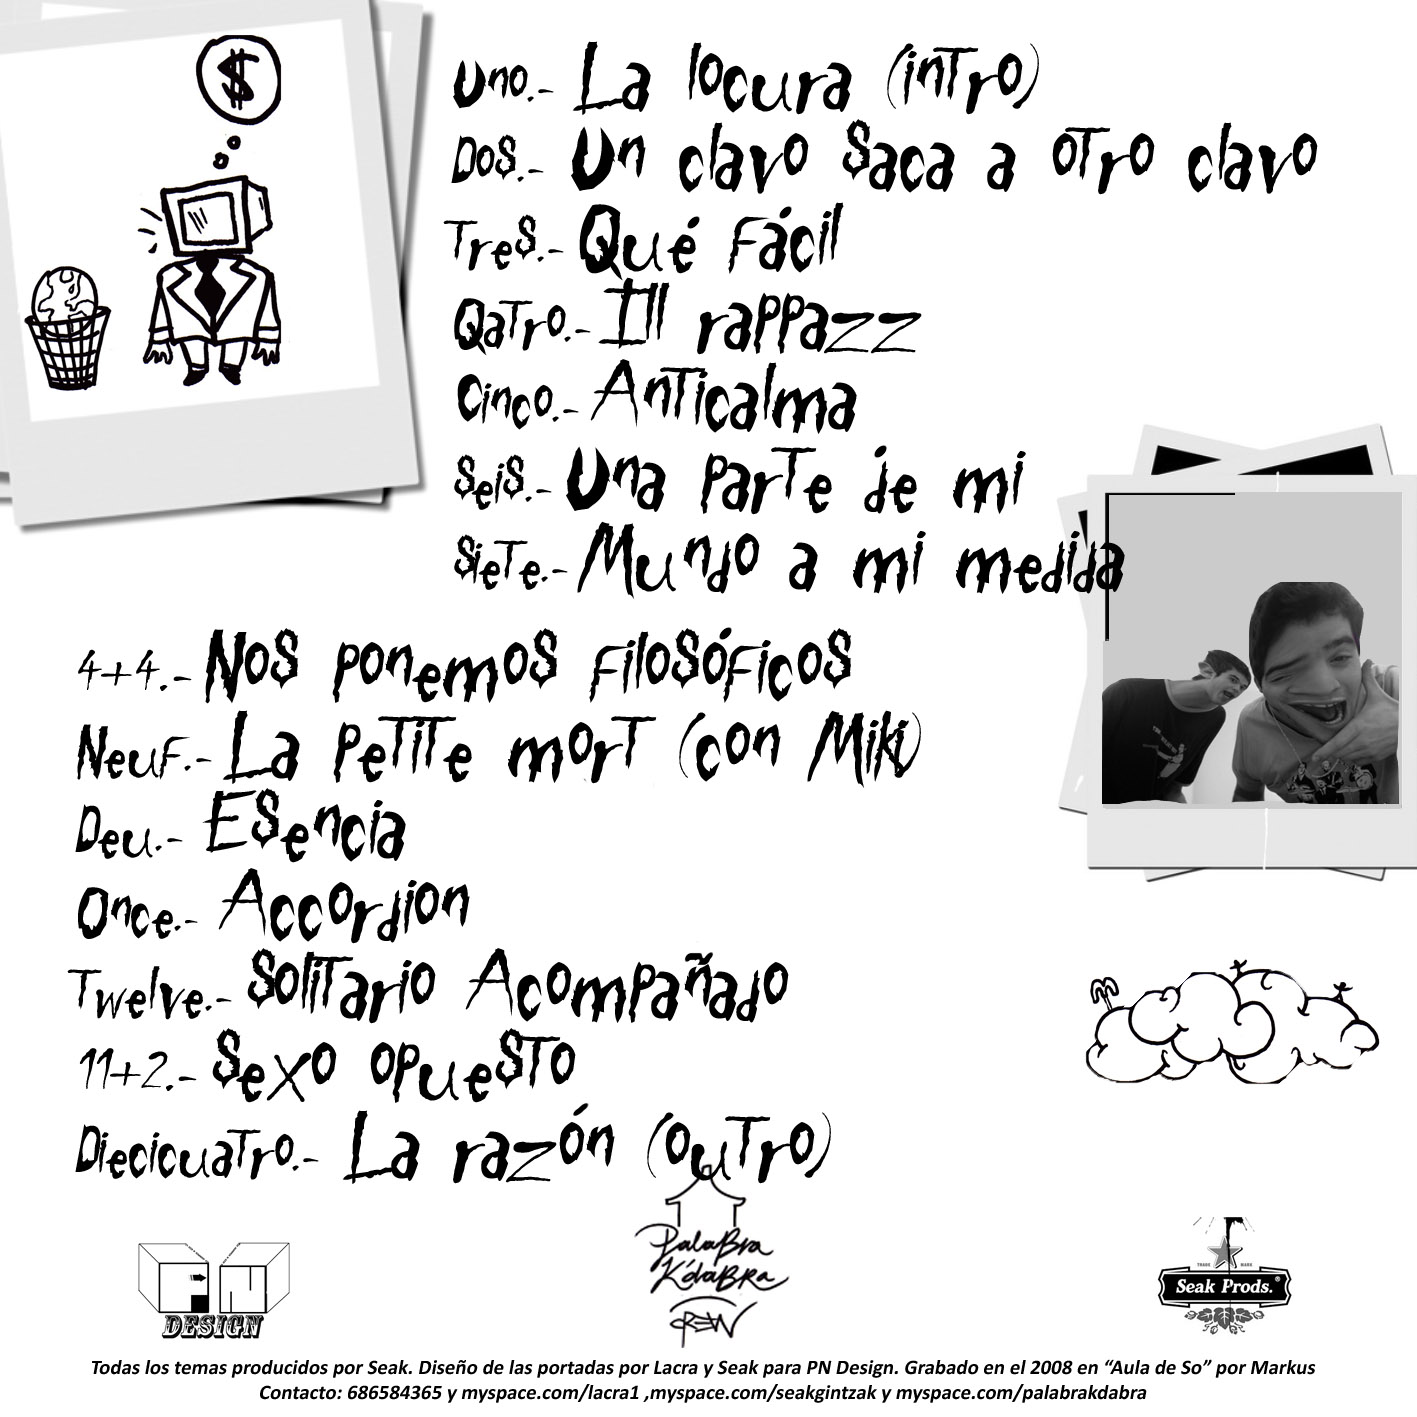 $
Uno.- La locura (intro)
Dos.- Un clavo saca a otro clavo
Tres.- Qué fácil
Qatro.- Ill rappazz
Cinco.- Anticalma
Seis.- Una parte de mi
Siete.- Mundo a mi medida
4+4.- Nos ponemos filosóficos
Neuf.- La petite mort (con Miki)
Deu.- Esencia
Once.- Accordion
Twelve.- Solitario Acompañado
11+2.- Sexo opuesto
Diecicuatro.- La razón (outro)
PN
DESIGN
Palabra
K'daBRa
CREW
TRADE MARK
Seak Prods.®
Todas los temas producidos por Seak. Diseño de las portadas por Lacra y Seak para PN Design. Grabado en el 2008 en “Aula de So” por Markus
Contacto: 686584365 y myspace.com/lacra1 ,myspace.com/seakgintzak y myspace.com/palabrakdabra